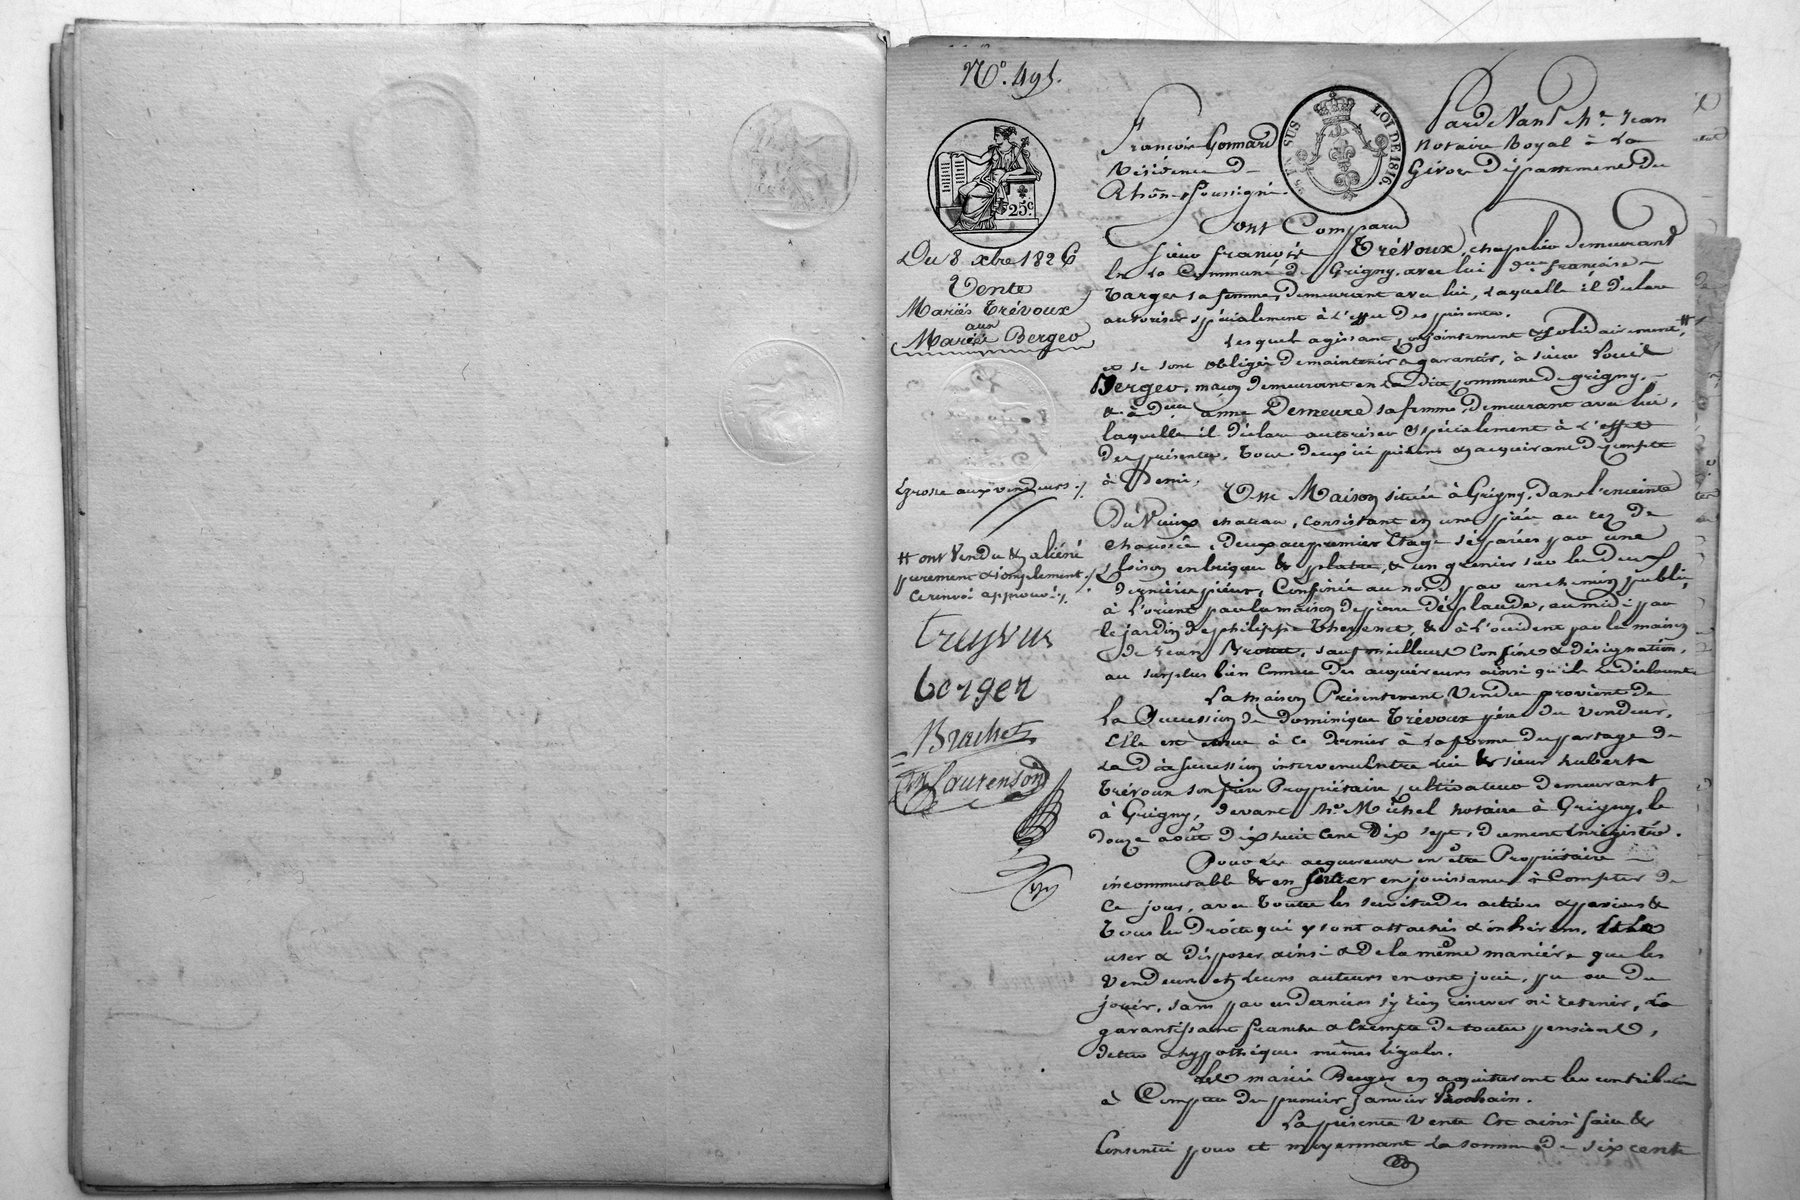 N.° 495.
Pardevant Me. Jean
François Gonnard notaire Royal à La
Résidence de Givors Département du
Rhône soussigné
EN SUS LOI DE 1816.
25c.
Ont Comparu
Sieur françois Trévoux, chapelier demeurant
En La Commune de Grigny, avec lui dme. françoise
Targer sa femme, demeurant avec lui, Laquelle il déclare
autoriser spécialement à L'effet des présentes.
Lesquels agissant conjointement & solidairement, #
et se sont obligés de maintenir & garantir, à sieur
Berger, maçon demeurant en La dite commune de grigny,
& à dme anne Demeure sa femme, demeurant avec lui,
laquelle il déclare autoriser spécialement à L'effet
des présentes, tous deux ici présens & acquérant de compte
à Demi,
Une Maison située à Grigny, dans l'enceinte
Du Vieux chateau, consistant en une pièce au rez de
chaussée, deux au premier Etage séparées par une
cloison en brique & platre, & un grenier sur les deux
dernières pièces, Confinée au nord par un chemin public,
à L'orient par la maison de pierre Desplaude, au midi par
le jardin de philippe Thevenet, & à L'occident par la maison
de Jean, sauf meilleurs confins & désignation,
au surplus bien connue des acquéreurs ainsi qu'ils le déclarent
La maison Présentement Vendue provient de
La Succession de dominique Trévoux père du vendeur,
Elle est échue à ce dernier à La forme du partage de
La dite succession intervenu Entre lui & sieur huberte
Trévoux son frère Propriétaire, cultivateur demeurant
à Grigny, devant Me. Michel notaire à Grigny, le
douze août dix huit cent Dix sept, dument Enregistré.
Pour les acquéreurs en être Propriétaire
incommutable & en entrer en jouissance à Compter de
Ce jour, avec toutes les servitudes actives & passives &
Tous les Droits qui y sont attachés & inhérens,
user & disposer ainsi & de la même manière que les
Vendeurs et Leurs auteurs en ont joui, pu ou du
jouir, sans par ces derniers s'y rien réserver ni retenir, La
garantissant franche & Exempte de toutes pensions,
dettes & hypothèques mêmes légales.
Les mariés Berger en acquitteront les contributions
à Compter du premier Janvier Prochain.
La présente Vente Est ainsi faite &
Consentie pour et moyennant La somme de six cents
Du 8 xbre 1826
Vente
Mariés Trévoux
aux
Mariés Berger
Grosse aux vendeurs ./.
# ont Vendu & aliéné
purement & simplement ./.
Ce renvoi approuvé ./.
treyvus
berger
Brachet
Laurenson